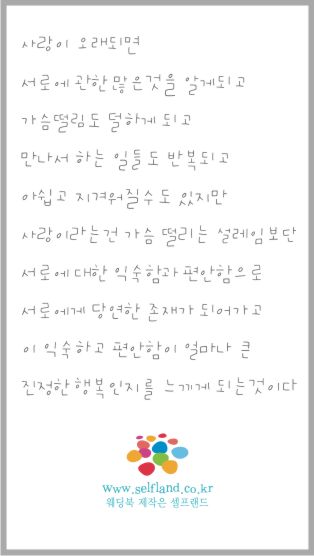 사랑이 오래되면
서로에 관한 많은것을 알게되고
가슴떨림도 덜하게 되고
만나서 하는 일들도 반복되고
아쉽고 지겨워질수도 있지만
사랑이라는건 가슴 떨리는 설레임보단
서로에 대한 익숙함과 편안함으로
서로에게 당연한 존재가 되어가고
이 익숙하고 편안함이 얼마나 큰
진정한 행복인지를 느끼게 되는것이다
www.selfland.co.kr
웨딩북 제작은 셀프랜드